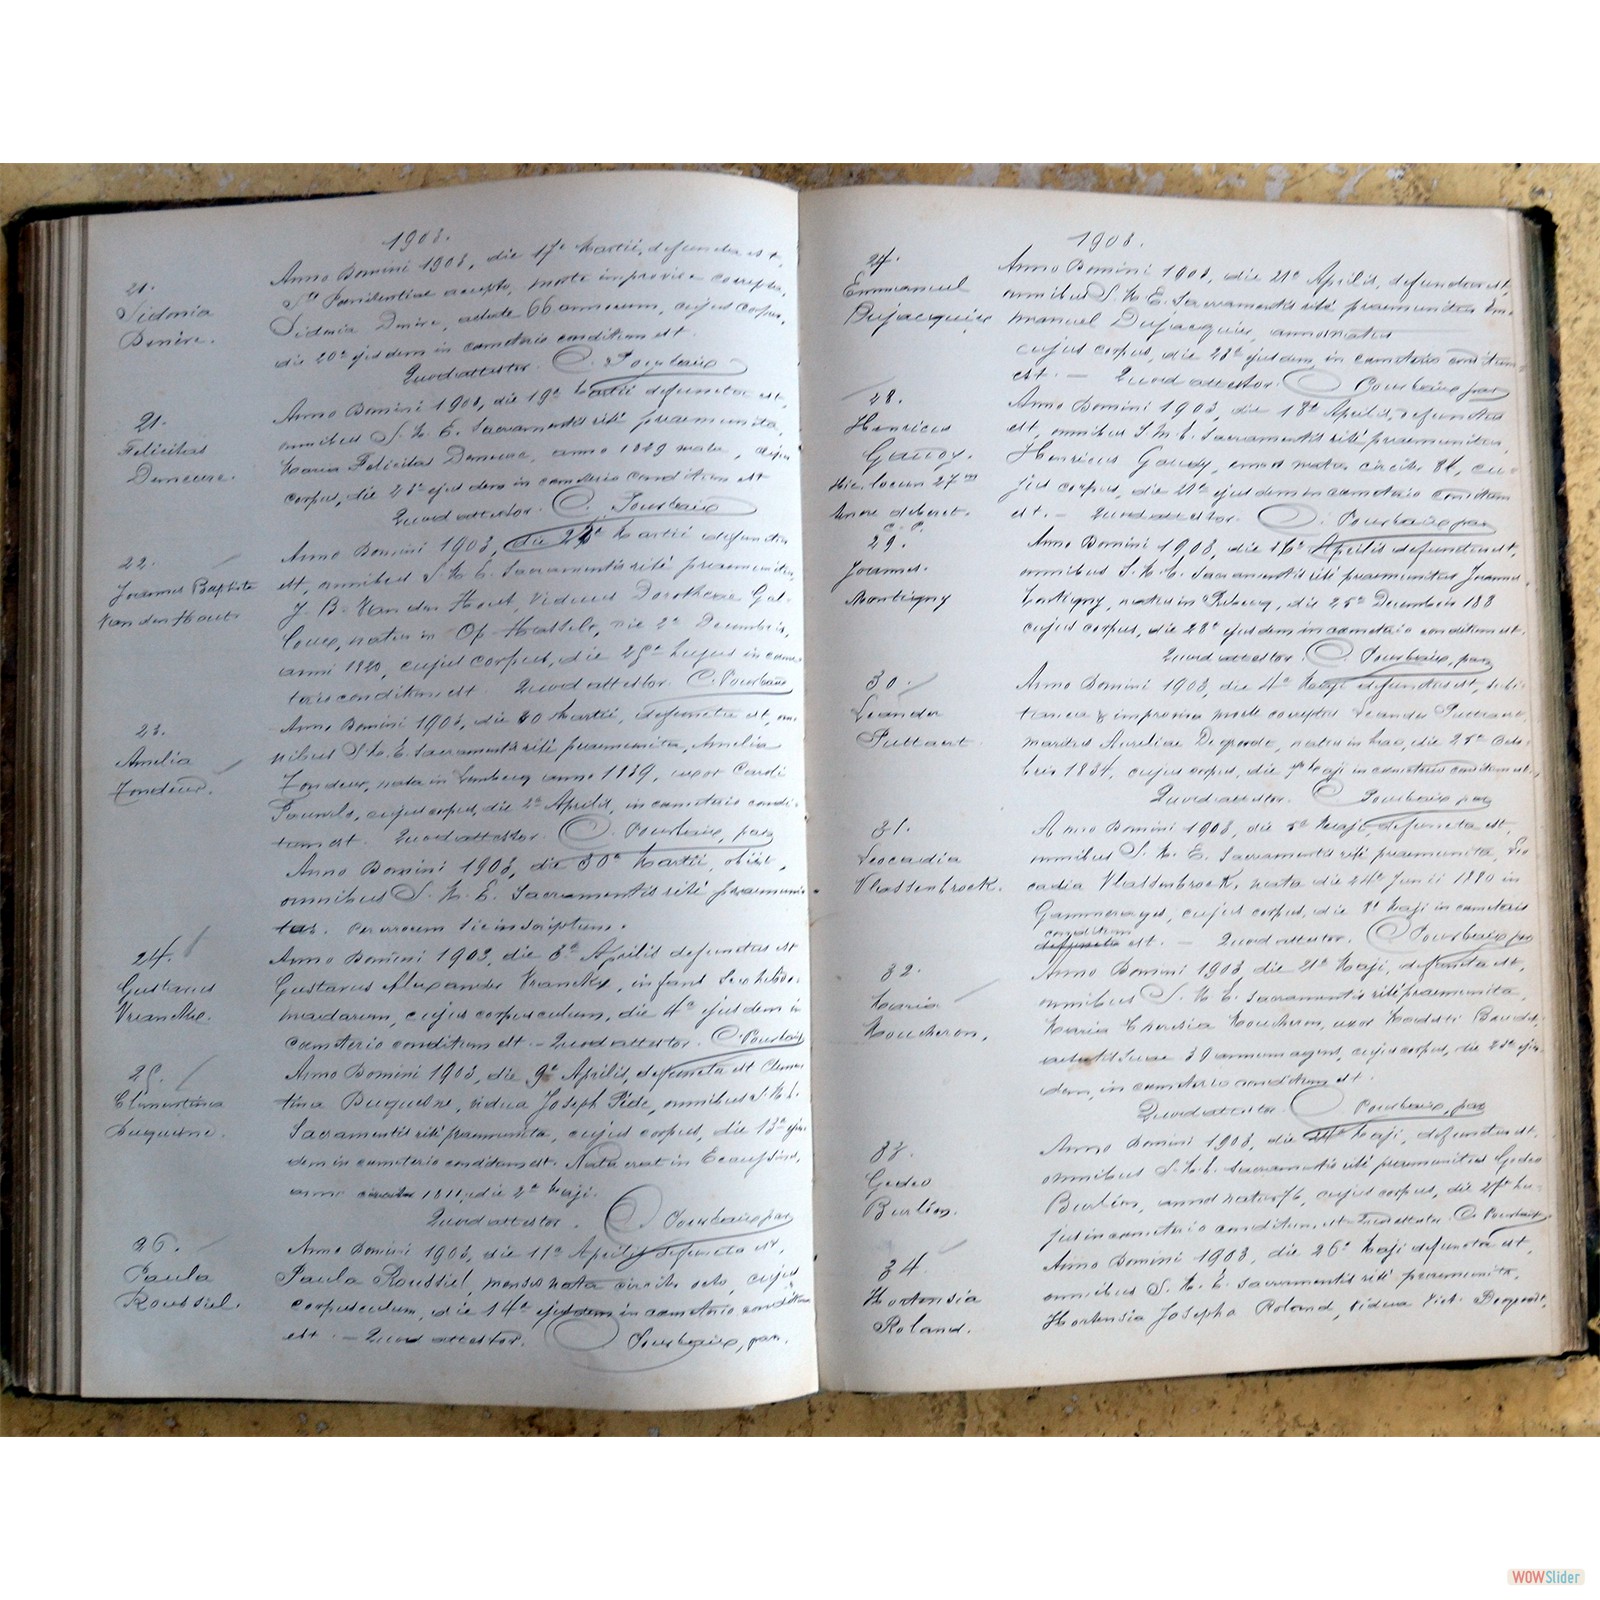 1903.
21.
Sidonia
Denère.
Anno Domini 1903, die 17a Martii, defuncta est,
Sta Poenitentiae accepto, morte improvisa correpta,
Sidonia Denère, aetate 66 annorum, cujus corpus,
die 20a ejusdem in cameterio conditum est.
Quod attestor. C. Pourbaix
21.
Felicitas
Demeure.
Anno Domini 1903, die 19a Martii defuncta est,
omnibus S. M. E. Sacramentis rité praemunita,
Maria Felicitas Demeure, anno 1829 nata, cujus
corpus, die 23a ejusdem in cameterio conditum est
Quod attestor. C. Pourbaix
22.
Joannes Baptista
Van der Hout.
Anno Domini 1903, die 23a Martii defunctus
est, omnibus S. M. E. Sacramentis rité praemunitus,
J. B. Van der Hout, viduus Dorotheae Gal-
loux, natus in Op-Hasselt, die 2a Decembris,
anni 1820, cujus corpus, die 25a hujus in came-
terio conditum est. Quod attestor. C. Pourbaix
23.
Amelia
Tondeur.
Anno Domini 1903, die 30 Martii, defuncta est, om-
nibus S. M. E. Sacramentis rité praemunita, Amelia
Tondeur, nata in Lemberg anno 1839, uxor Caroli
cujus corpus, die 2a Aprilis, in cameterio condi-
tum est. Quod attestor. C. Pourbaix, par.
Anno Domini 1903, die 30a Martii, obiit,
omnibus S. M. E. Sacramentis rité praemuni-
tus. Per errorem sic inscriptum.
24.
Gustavus
Vranckx.
Anno Domini 1903, die 3a Aprilis defunctus est
Gustavus Alexander Vranckx, infans sex hebdo-
madarum, cujus corpusculum, die 4a ejusdem in
cameterio conditum est. - Quod attestor. C. Pourbaix
25.
Clementina
Duquesne.
Anno Domini 1903, die 9a Aprilis, defuncta est Clemen-
tina Duquesne, vidua Joseph Pède, omnibus S. M. E.
Sacramentis rité praemunita, cujus corpus, die 13a ejus-
dem in cameterio conditum est. Nata erat in Ecaussines,
anno 1811, die 2a Maji.
Quod attestor. C. Pourbaix, par.
26.
Paula
Roussiel.
Anno Domini 1903, die 11a Aprilis defuncta est,
Paula Roussiel, menses nata circiter octo, cujus
corpusculum, die 14a ejusdem in cameterio conditum
est. - Quod attestor. C. Pourbaix, par.
1903.
27.
Emmanuel
Dujacquier
Anno Domini 1903, die 21a Aprilis, defunctus est,
omnibus S. M. E. Sacramentis rité praemunitus Em-
manuel Dujacquier, annos natus
cujus corpus, die 23a ejusdem, in cameterio conditum
est. - Quod attestor. C. Pourbaix, par.
28.
Henricus
Gaudy.
Hic locum 27um
tenere deberet.
C. P.
Anno Domini 1903, die 18a Aprilis, defunctus
est, omnibus S. M. E. Sacramentis rité praemunitus,
Henricus Gaudy, annos natus circiter 84, cu-
jus corpus, die 21a ejusdem in cameterio conditum
est. - Quod attestor. C. Pourbaix, par.
29.
Joannes.
Montigny
Anno Domini 1903, die 26a Aprilis defunctus est,
omnibus S. M. E. Sacramentis rité praemunitus Joannes
Montigny, natus in die 25a Decembris 188
cujus corpus, die 28a ejusdem in cameterio conditum est.
Quod attestor. C. Pourbaix, par.
30.
Leander
Puttaert
Anno Domini 1903, die 4a Maji defunctus est, subi-
tanea & improvisa morte correptus Leander Puttaert,
maritus Aureliae Degroodt, natus in die 25a Octo-
bris 1834, cujus corpus, die 7a Maji in cameterio conditum est.
Quod attestor. C. Pourbaix, par.
31.
Leocadia
Vlassenbroek.
Anno Domini 1903, die 5a Maji, defuncta est,
omnibus S. M. E. Sacramentis rité praemunita, Leo-
cadia Vlassenbroek, nata die 24a Junii 1880 in
Gammerages, cujus corpus, die 8a Maji in cameterio
conditum
defuncta est. - Quod attestor. C. Pourbaix, par.
32.
Maria
Moucheron.
Anno Domini 1903, die 21a Maji, defuncta est,
omnibus S. M. E. Sacramentis rité praemunita,
Maria Theresia Moucheron, uxor Modesti Baude,
aetatis suae 39 annum agens, cujus corpus, die 23a ejus-
dem, in cameterio conditum est.
Quod attestor. C. Pourbaix, par.
33.
Gedeo
Burlen.
Anno Domini 1903, die 24a Maji, defunctus est,
omnibus S. M. E. Sacramentis rité praemunitus Gedeo
Burlen, annos natus 76, cujus corpus, die 27a hu-
jus in cameterio conditum est. Quod attestor. C. Pourbaix
34.
Hortensia
Roland.
Anno Domini 1903, die 26a Maji defuncta est,
omnibus S. M. E. Sacramentis rité praemunita,
Hortensia Josepha Roland, vidua Vict. Degrodt,
WOWSlider